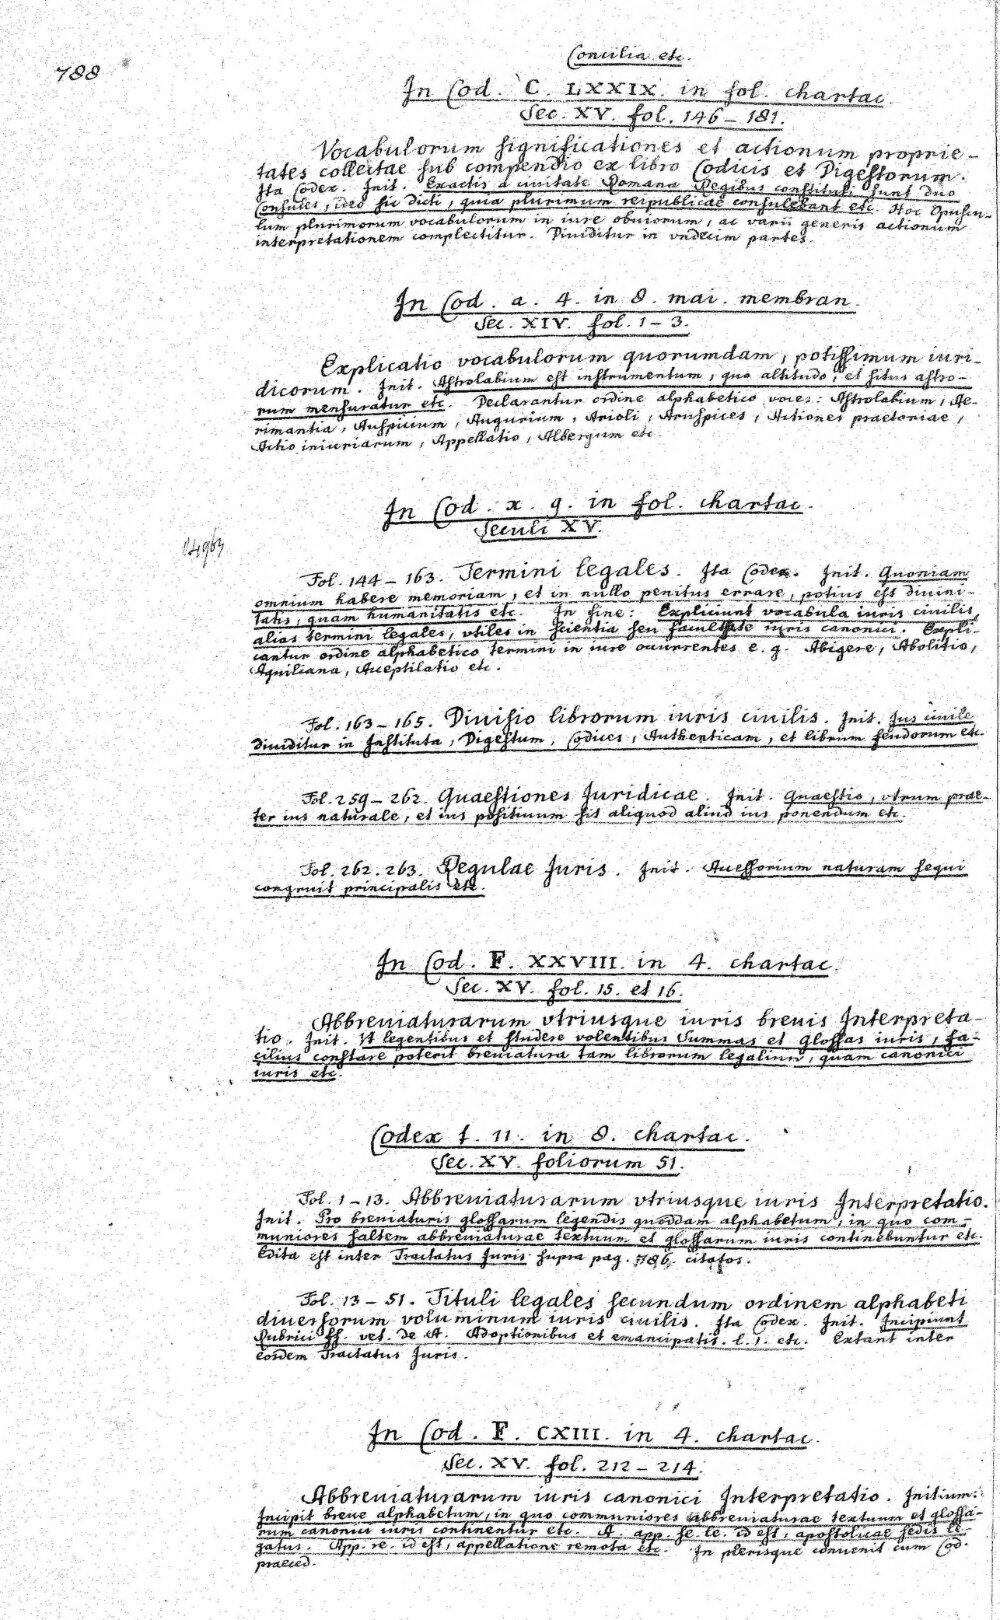 Concilia etc.
788
In Cod. C. LXXIX. in fol. chartac.
Sec. XV. fol. 146 – 181.
Vocabulorum significationes et actionum proprie-
tates collectae sub compendio ex libro Codicis et Digestorum.
Ita Codex. Init. Exactis a civitate Romana Regibus constituti sunt duo
Consules, ideo sic dicti, quia plurimum reipublicae consulebant etc. Hoc Opuscu-
lum plurimorum vocabulorum in iure obuiorum, ac varii generis actionum
interpretationem complectitur. Diuiditur in vndecim partes.
In Cod. a. 4. in 8. mai. membran.
Sec. XIV. fol. 1 – 3.
Explicatio vocabulorum quorumdam, potissimum iuri-
dicorum. Init. Astrolabium est instrumentum, quo altitudo, et situs astro-
rum mensuratur etc. Declarantur ordine alphabetico voces: Astrolabium, Ae-
rimantia, Auspicium, Augurium, Arioli, Aruspices, Actiones praetoriae,
Actio iniuriarum, Appellatio, Albergum etc.
In Cod. x. 9. in fol. chartac.
Seculi XV.
Fol. 144 – 163. Termini legales. Ita Codex. Init. Quoniam
omnium habere memoriam, et in nullo penitus errare, potius est diuini-
tatis, quam humanitatis etc. In fine: Expliciunt vocabula iuris ciuilis,
alias termini legales, vtiles in scientia seu facultate iuris canonici. Expli-
cantur ordine alphabetico termini in iure occurrentes e. g. Abigere, Abolitio,
Aquiliana, Acceptilatio etc.
Fol. 163 – 165. Diuisio librorum iuris ciuilis. Init. Jus ciuile
diuiditur in Instituta, Digestum, Codices, Authenticam, et librum feudorum etc.
Fol. 259 – 262. Quaestiones Juridicae. Init. Quaestio, vtrum prae-
ter ius naturale, et ius positiuum sit aliquod aliud ius ponendum etc.
Fol. 262. 263. Regulae Juris. Init. Accessorium naturam sequi
congruit principalis etc.
In Cod. F. XXVIII. in 4. chartac.
Sec. XV. fol. 15. et 16.
Abbreuiaturarum vtriusque iuris breuis Interpreta-
tio. Init. Vt legentibus et studere volentibus Summas et Glossas iuris, fa-
cilius constare poterit breuiatura tam librorum legalium, quam canonici
iuris etc.
Codex f. 11. in 8. chartac.
Sec. XV. foliorum 51.
Fol. 1 – 13. Abbreuiaturarum vtriusque iuris Interpretatio.
Init. Pro breuiaturis glossarum legendis quoddam alphabetum, in quo com-
muniores saltem abbreuiaturae textuum et glossarum iuris continebuntur etc.
Edita est inter Tractatus Juris supra pag. 786. citatos.
Fol. 13 – 51. Tituli legales secundum ordinem alphabeti
diuersorum voluminum iuris ciuilis. Ita Codex. Init. Incipiunt
Rubrici ff. vet. de A. Adoptionibus et emancipatis. l. 1. etc. Extant inter
eosdem Tractatus Juris.
In Cod. F. CXIII. in 4. chartac.
Sec. XV. fol. 212 – 214.
Abbreuiaturarum iuris canonici Interpretatio. Initium:
Incipit breue alphabetum, in quo communiores abbreuiaturae textuum et glossa-
rum canonici iuris continentur etc. A. app. se. le. id est, apostolicae sedis le-
gatus. App. re. id est, appellatione remota etc. In plerisque conuenit cum Cod.
praeced.